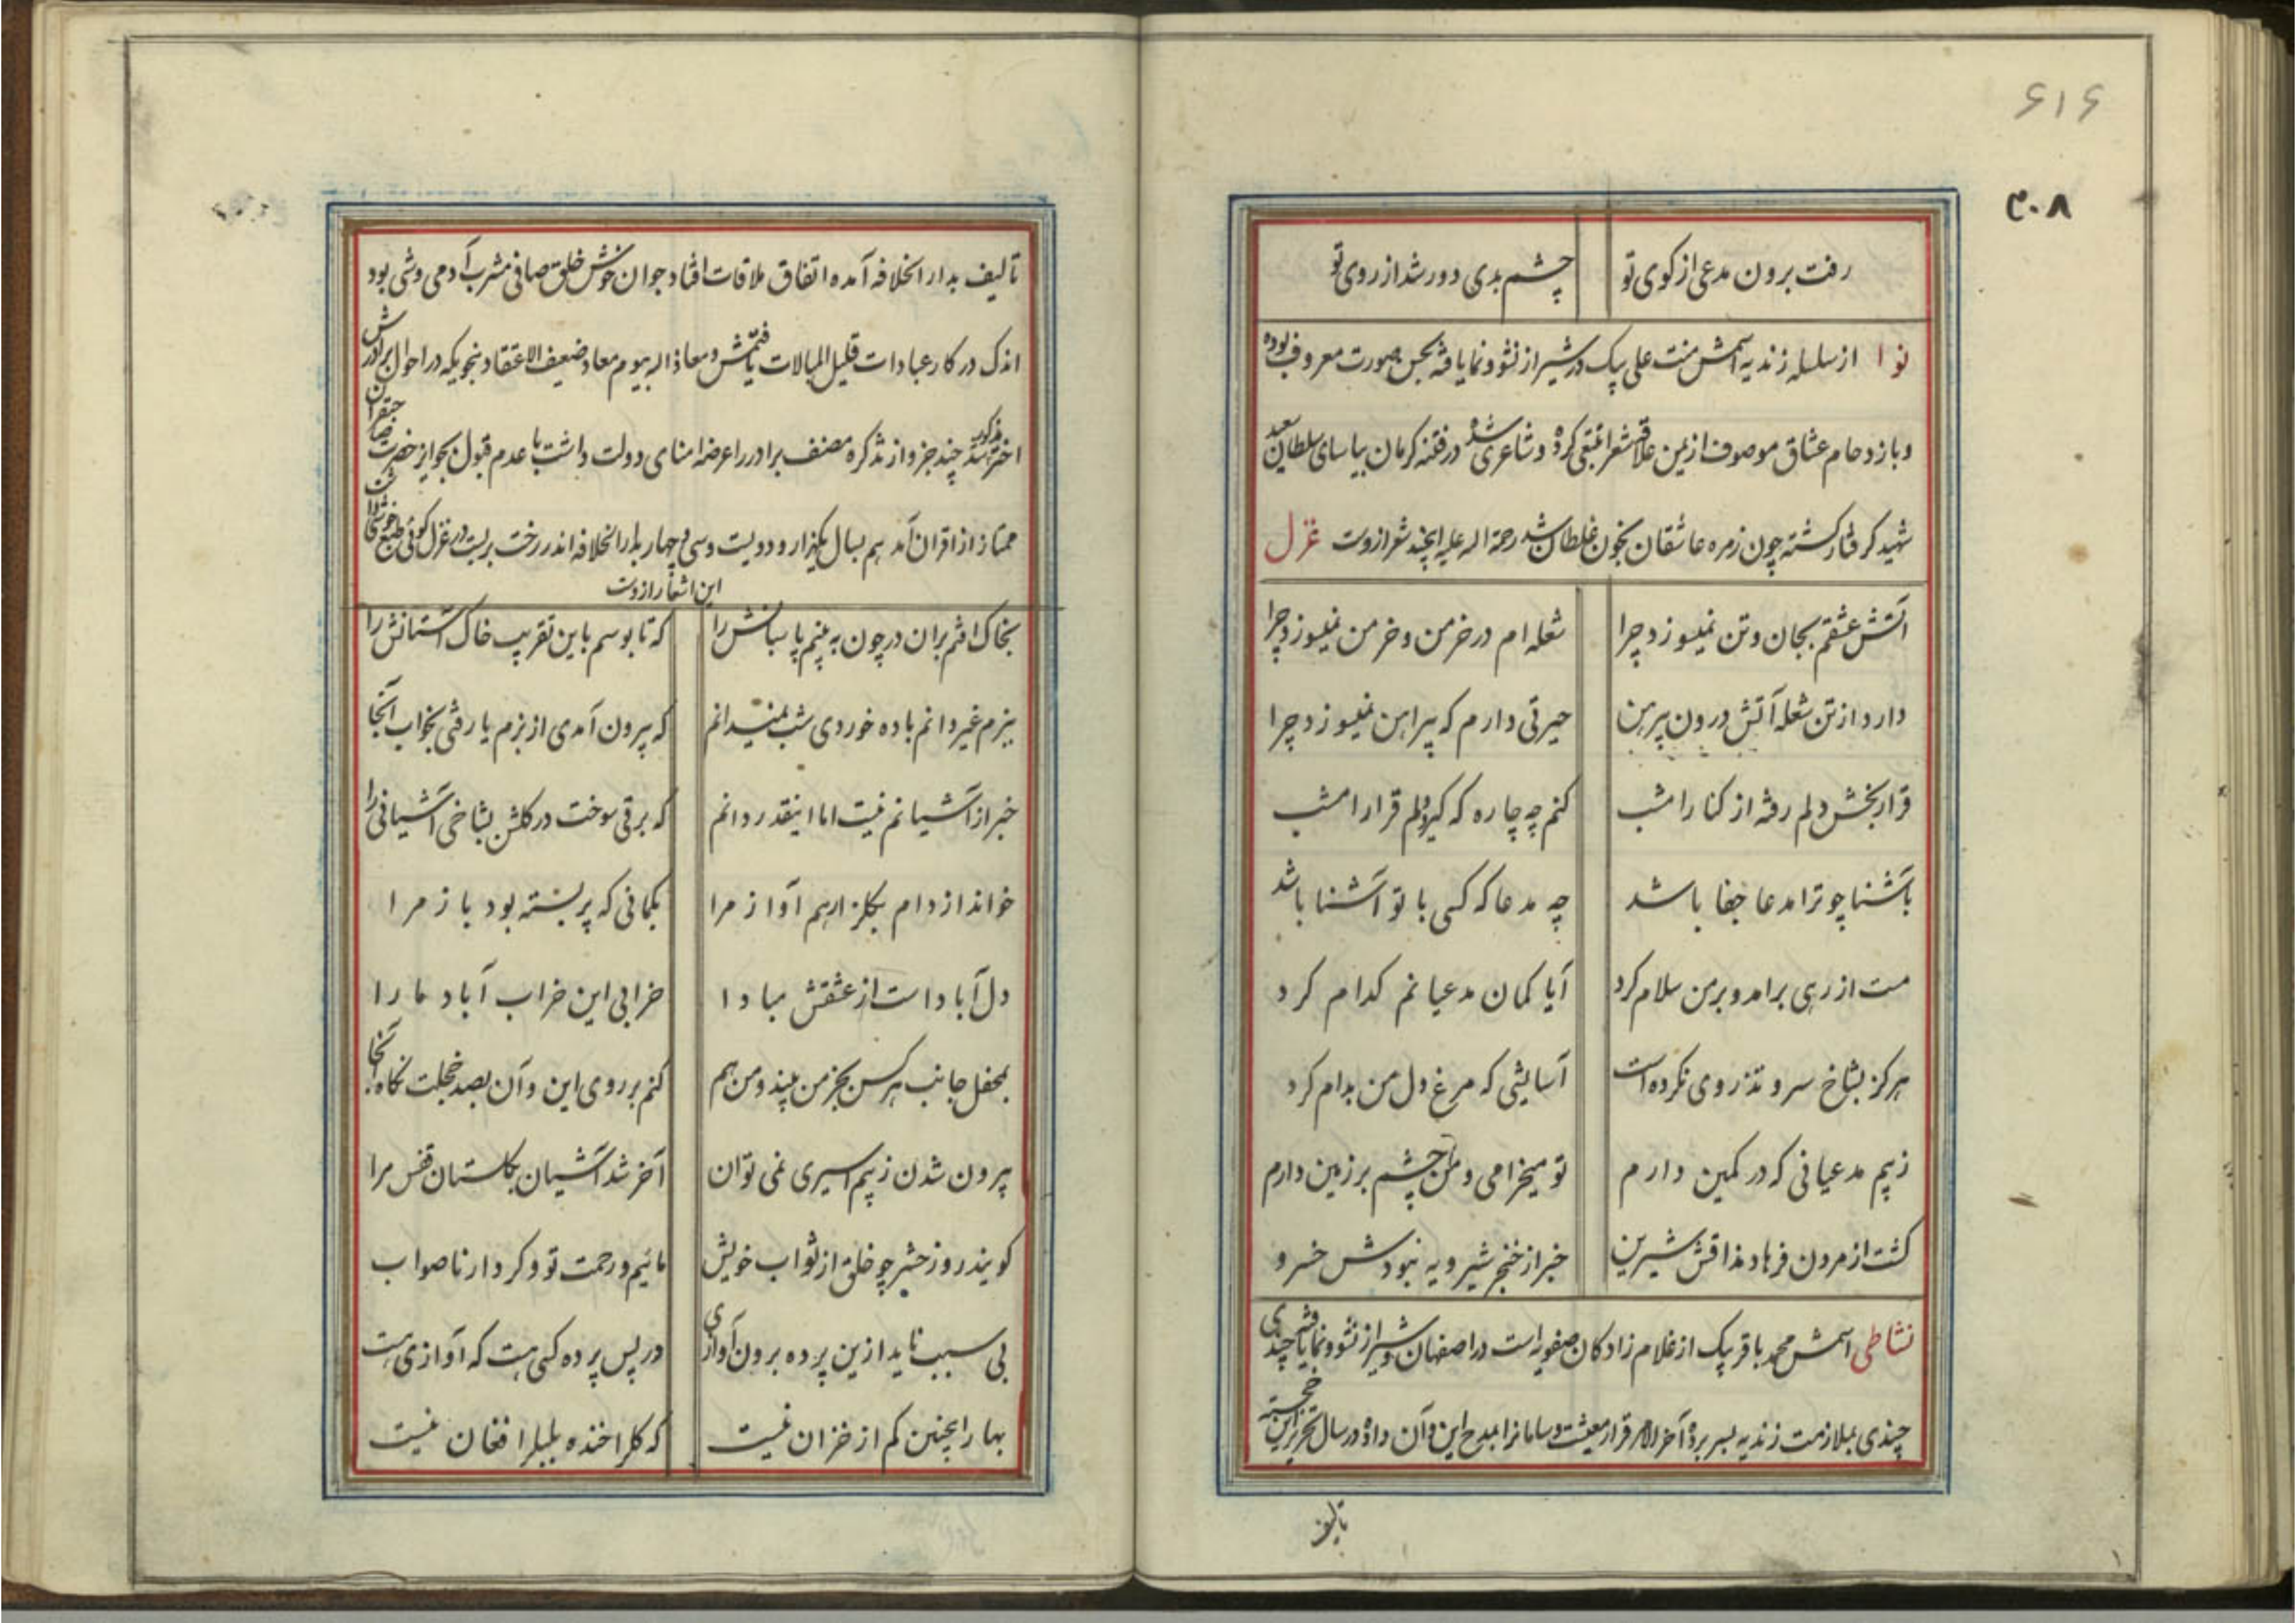 ۶۱۶
۴۰۸
رفت برون مدعی از کوی تو چشم بدی دور شد از روی تو
نوا از سلسله زندیه اسمش منت علی بیک در شیراز نشو و نما یافته بحسن صورت معروف بوده
و بازدحام عشاق موصوف ازین علاقه شعرا تتبعی کرده و شاعری شده در فتنه کرمان بیاسای سلطان سعید
شهید گرفتار گشته چون زمره عاشقان بخون غلطان شد رحمة اله علیه اینچند شعر ازوست غزل
آتش عشقم بجان و تن نمیسوزد چرا شعله ام در خرمن و خرمن نمیسوزد چرا
دارد از تن شعله آتش درون پیرهن حیرتی دارم که پیراهن نمیسوزد چرا
قرار بخش دلم رفته از کنار امشب کنم چه چاره که گیرد دلم قرار امشب
بآشنا چو ترا مدعا جفا باشد چه مدعا که کسی با تو آشنا باشد
مست از رهی برامد و بر من سلام کرد آیا گمان مدعیانم کدام کرد
هرگز بشاخ سرو تذروی نکرده است آسایشی که مرغ دل من بدام کرد
زبیم مدعیانی که در کمین دارم تو میخرامی و من چشم بر زمین دارم
گشت از مردن فرهاد مذاقش شیرین خبر از خنجر شیرویه نبودش خسرو
نشاطی اسمش محمد باقر بیک از غلام زادگان صفویه است در اصفهان و شیراز نشو و نما یافته چندی
چندی بملازمت زندیه بسر برده آخرالامر قرار معیشت و سامانرا بمدح این و آن داده در سال تحریر این خجسته
تالیف
تالیف بدارالخلافه آمده اتفاق ملاقات افتاد جوان خوش خلق صافی مشرب آدمی وشی بود
اندک در کار عبادات قلیل المبالات یافتمش و معاذ اله بیوم معاد ضعیف الاعتقاد بنحویکه در احوال برادرش
اختر مذکور شد چند جزو از تذکره مصنف برادر را عرضه امنای دولت داشت با عدم قبول بجوایز حضرت صاحبقران
ممتاز از اقران آمد هم بسال یکهزار و دویست و سی و چهار بدارالخلافه اندر رخت بربست در غزل گوئی طبع خوشی داشت
این اشعار ازوست
بخاک افتم بران در چون به بینم پاسبانش را که تا بوسم باین تقریب خاک آستانش را
ببزم غیر دانم باده خوردی شب نمیدانم که بیرون آمدی از بزم یا رفتی بخواب آنجا
خبر از آشیانم نیست اما اینقدر دانم که برقی سوخت در گلشن بشاخی آشیانی را
خواند از دام بگلزار هم آواز مرا بگمانی که پر بسته بود باز مرا
دل آباد است از عشقش مبادا خرابی این خراب آباد ما را
بمحفل جانب هرکس بجز من بیند و من هم کنم بر روی این و آن بصد خجلت نگاه آنجا
بیرون شدن زبیم اسیری نمی توان آخر شد آشیان بگلستان قفس مرا
گویند روز حشر چو خلق از ثواب خویش مائیم و رحمت تو و کردار ناصواب
بی سبب ناید ازین پرده برون آوازی در پس پرده کسی هست که آوازی هست
بهار اینچنین کم از خزان نیست که گلرا خنده بلبلرا فغان نیست